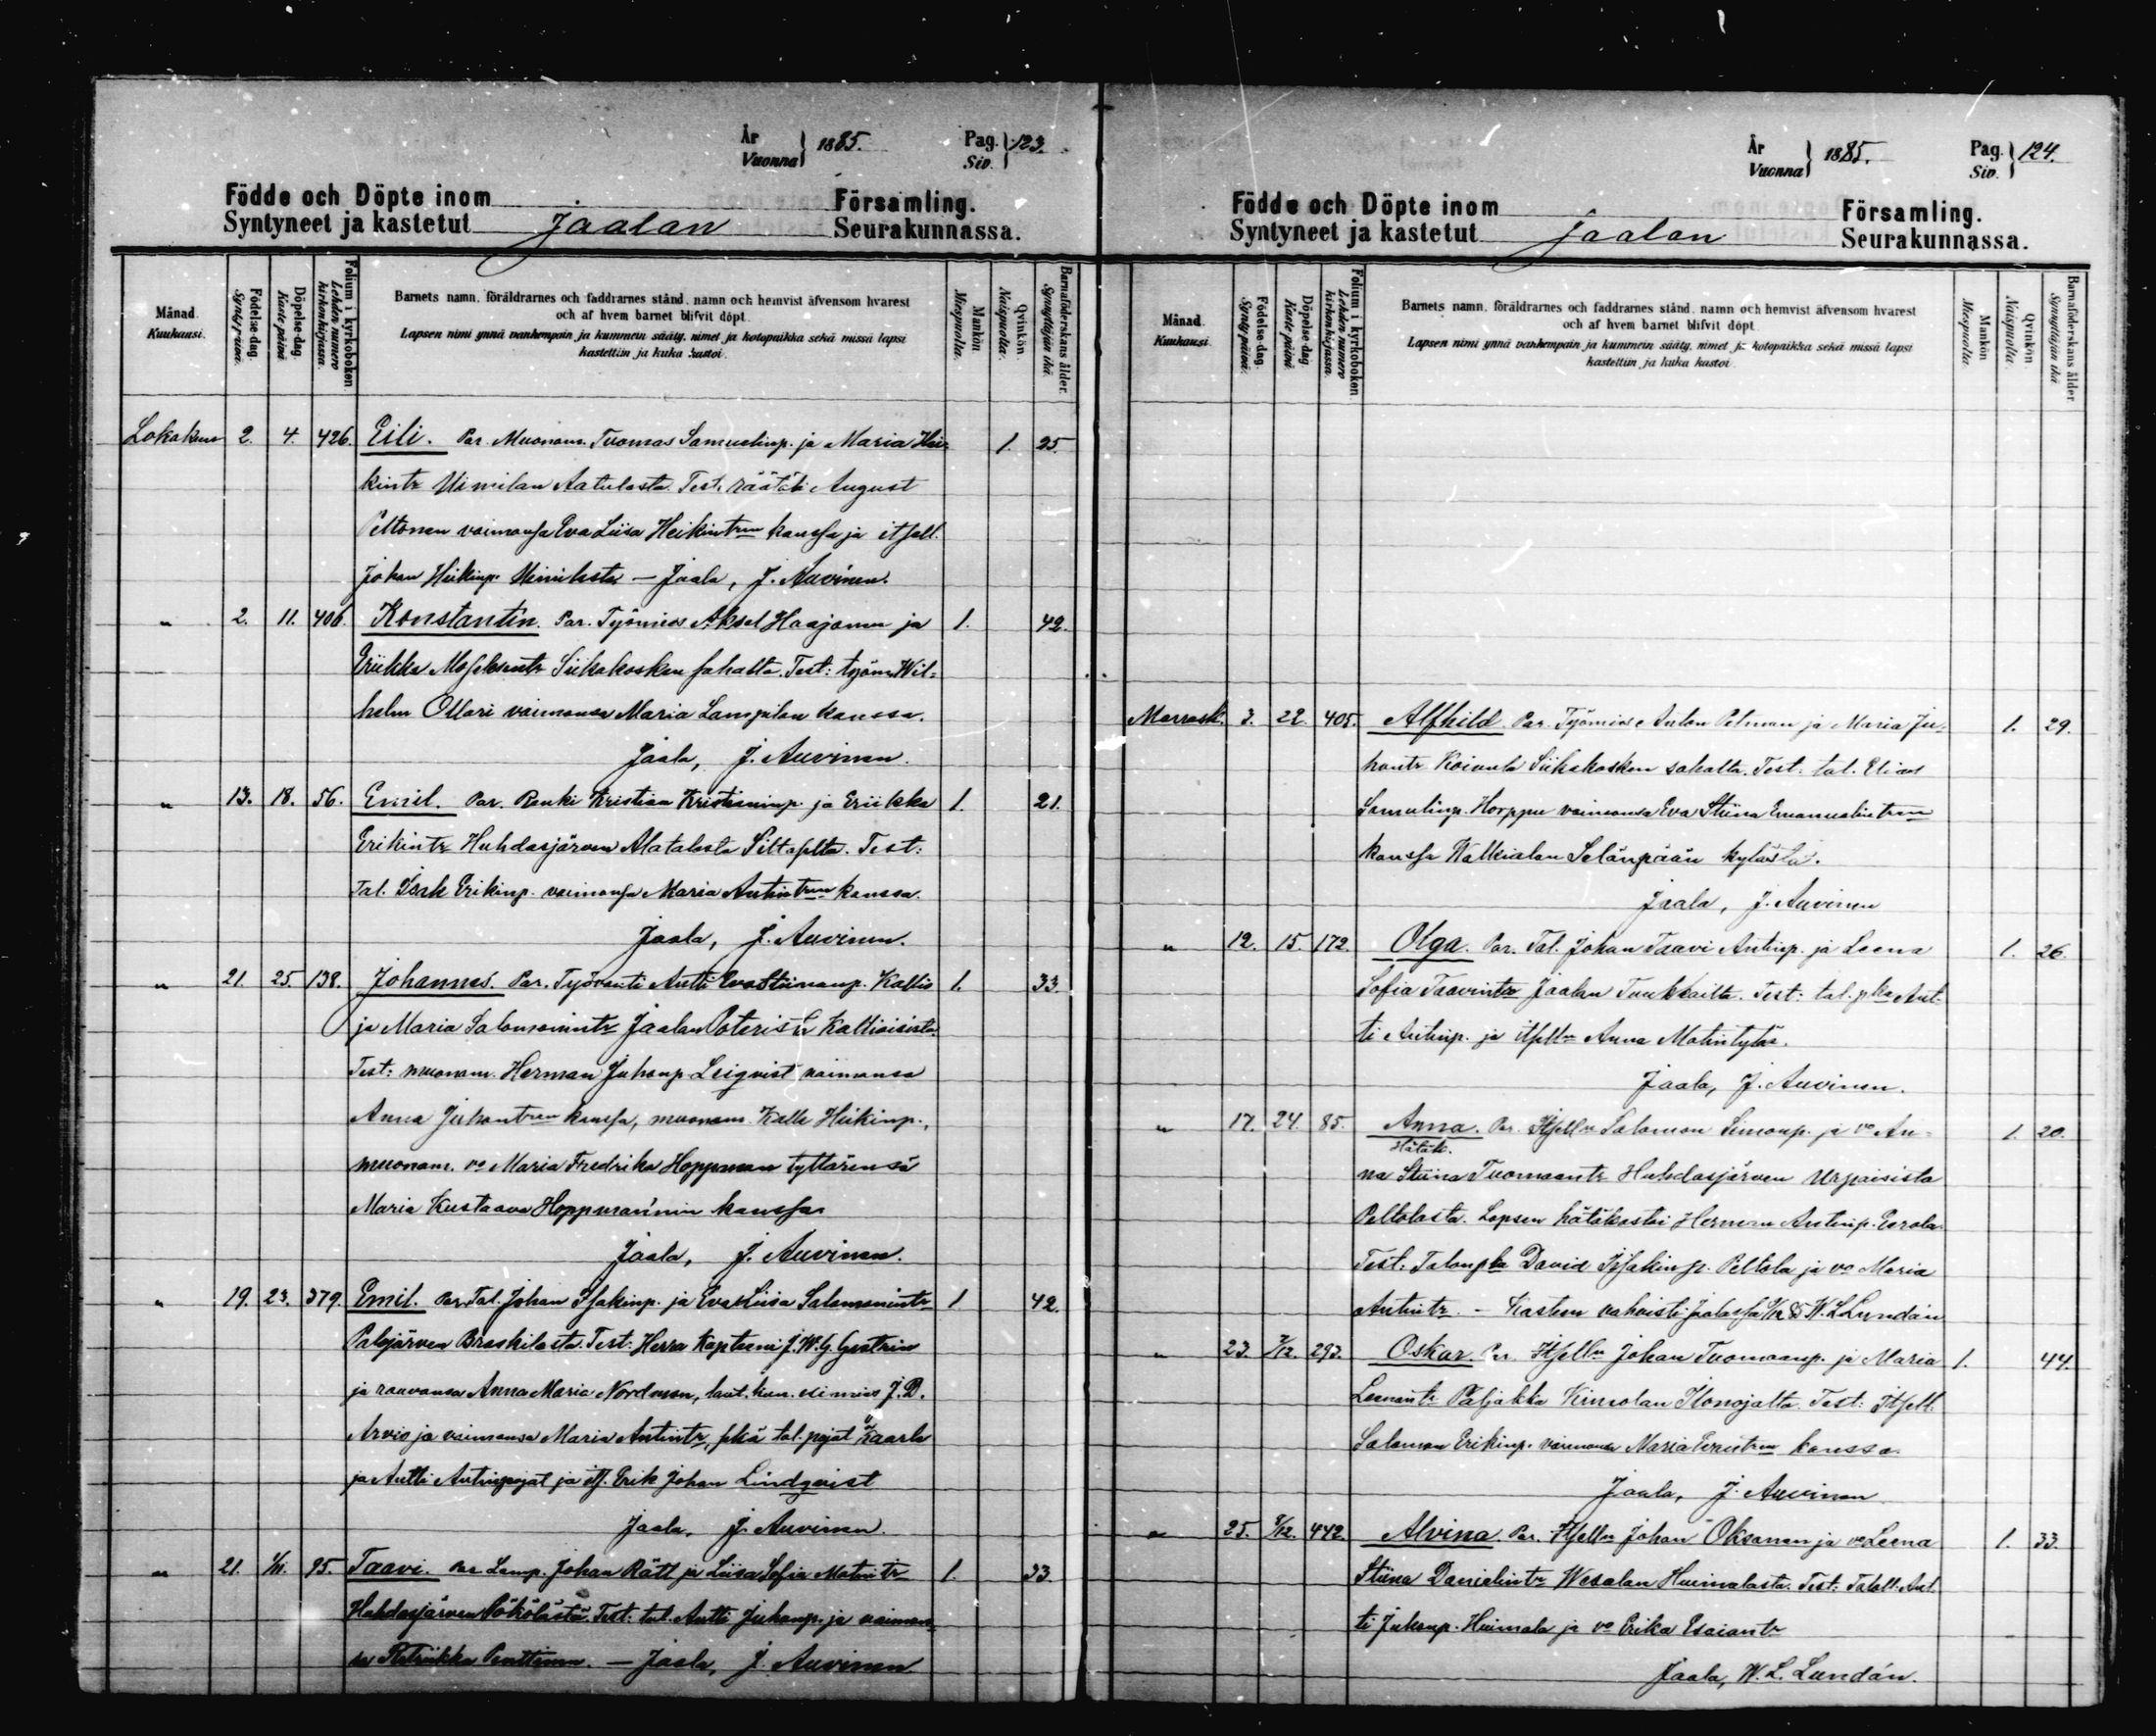 År
Vuonna } 1885. Pag.
Siv. } 123.
Födde och Döpte inom Församling.
Syntyneet ja kastetut Jaalan Seurakunnassa.
Månad.
Kuukausi.
Födelse-dag.
Syntypäivä.
Döpelse-dag.
Kaste-päivä.
Folium i kyrkoboken.
Lehden numero
kirkonkirjassa.
Barnets namn, föräldrarnes och faddrarnes stånd, namn och hemvist äfvensom hvarest
och af hvem barnet blifvit döpt.
Lapsen nimi ynnä vanhempain ja kummein sääty, nimet ja kotopaikka sekä missä lapsi
kastettiin ja kuka kastoi.
Mankön
Miespuolta.
Qvinkön.
Naispuolta.
Barnaföderskans ålder.
Synnyttäjän ikä.
Lokakuu 2. 4. 426. Eili. Par. Muonam. Tuomas Samuelinp. ja Maria Hei- 1. 25.
kintr Uimilan Aatulasta. Test. räätäli August
Peltonen vaimonsa Eva Liisa Heikintren kanssa ja itsell.
Johan Heikinp. Uimilasta — Jaala, J. Auvinen.
" 2. 11. 406. Konstantin. Par. Työmies Aksel Haajanen ja 1. 42.
Eriikka Siikakosken sahalta. Test: työm. Wil-
helm Ollari vaimonsa Maria Lampilan kanssa.
Jaala, J. Auvinen.
" 13. 18. 56. Emil. Par. Renki Kristian Kristianinp. ja Eriikka 1. 21.
Erikintr Huhdasjärven Alatalosta Test:
Tal. Isak Erikinp. vaimonsa Maria Antintren kanssa.
Jaala, J. Auvinen.
" 21. 25. 138. Johannes. Par. Antti Kallio 1. 33.
ja Maria Salomonintr Jaalan
Test: muonam. Herman Juhonp. Leiqvist vaimonsa
Anna Juhontren kanssa, muonam. Kalle Heikinp.,
muonam. vo Maria Fredrika Hoppman tyttärensä
Maria Kustaava Hoppman'nin kanssa
Jaala, J. Auvinen.
" 19. 23. 379. Emil. Par. Tal. Johan Isakinp. ja Eva Liisa Salomonintr 1 42.
Paljärven Braskilasta. Test: Herra Kapteeni J. W. G.
ja rouvansa Anna Maria Nordman, laut. kun. esimies J. D.
Arvio ja vaimonsa Maria Antintr, sekä tal. pojat Kaarle
ja Antti Antinpojat ja its. Erik Johan Lindqvist
Jaala, J. Auvinen.
" 21. 1/11. 95. Taavi. Par. Lamp. Johan Rätt ja Liisa Sofia Matintr 1. 33.
Huhdasjärven Pökölästä. Test: tal. Antti Juhonp. ja vaimon-
sa Penttinen. — Jaala, J. Auvinen
År
Vuonna } 1885. Pag.
Siv. } 124.
Födde och Döpte inom Församling.
Syntyneet ja kastetut Jaalan Seurakunnassa.
Månad.
Kuukausi.
Födelse-dag.
Syntypäivä.
Döpelse-dag.
Kaste-päivä.
Folium i kyrkoboken.
Lehden numero
kirkonkirjassa.
Barnets namn, föräldrarnes och faddrarnes stånd, namn och hemvist äfvensom hvarest
och af hvem barnet blifvit döpt.
Lapsen nimi ynnä vanhempain ja kummein sääty, nimet ja kotopaikka sekä missä lapsi
kastettiin ja kuka kastoi.
Mankön
Miespuolta.
Qvinkön
Naispuolta.
Barnaföderskans ålder.
Synnyttäjän ikä.
Marrask. 3. 22. 405. Alfhild. Par. Työmies Anton Pelman ja Maria Ju- 1. 29.
hontr Koivula Siikakosken sahalta. Test: tal. Elias
Samulinp. Horppu vaimonsa Eva Stiina Emanuelintren
kanssa Walkialan Selänpään kylästä.
Jaala, J. Auvinen
" 12. 15. 172. Olga. Par. Tal. Johan Taavi Antinp. ja Leena 1. 26.
Sofia Taavintr Jaalan Tuukkailta. Test: tal. pka Ant-
ti Antinp. ja itsell. Anna Matintytär.
Jaala, J. Auvinen.
" 17. 24. 85. Anna. Par. Itsell. Salomon Simonp. ja vo An- 1. 20.
Hätäk.
na Stiina Tuomaantr Huhdasjärven Urpaisista
Peltolasta. Lapsen hätäkastoi Herman Antinp. Eerola.
Test: Talonpka David Isakinp. Peltola ja vo Maria
Antintr. — Kasteen vahvisti Jaalassa W. L. Lundán
" 23. 7/12. 293. Oskar. Par. Itsell. Johan Tuomaanp. ja Maria 1. 44.
Leenantr Paljakka Kimolan Ilonojalta. Test: Itsell.
Salomon Erikinp. vaimonsa Maria kanssa.
Jaala, J. Auvinen
" 25. 442. Alvina. Par. Itsell. Johan Oksanen ja vo Leena 1. 33.
Stiina Danielintr Wesalan Huimalasta. Test: Taloll. Ant-
ti Juhonp. Huimala ja vo Erika Esaiantr
Jaala, W. L. Lundán.